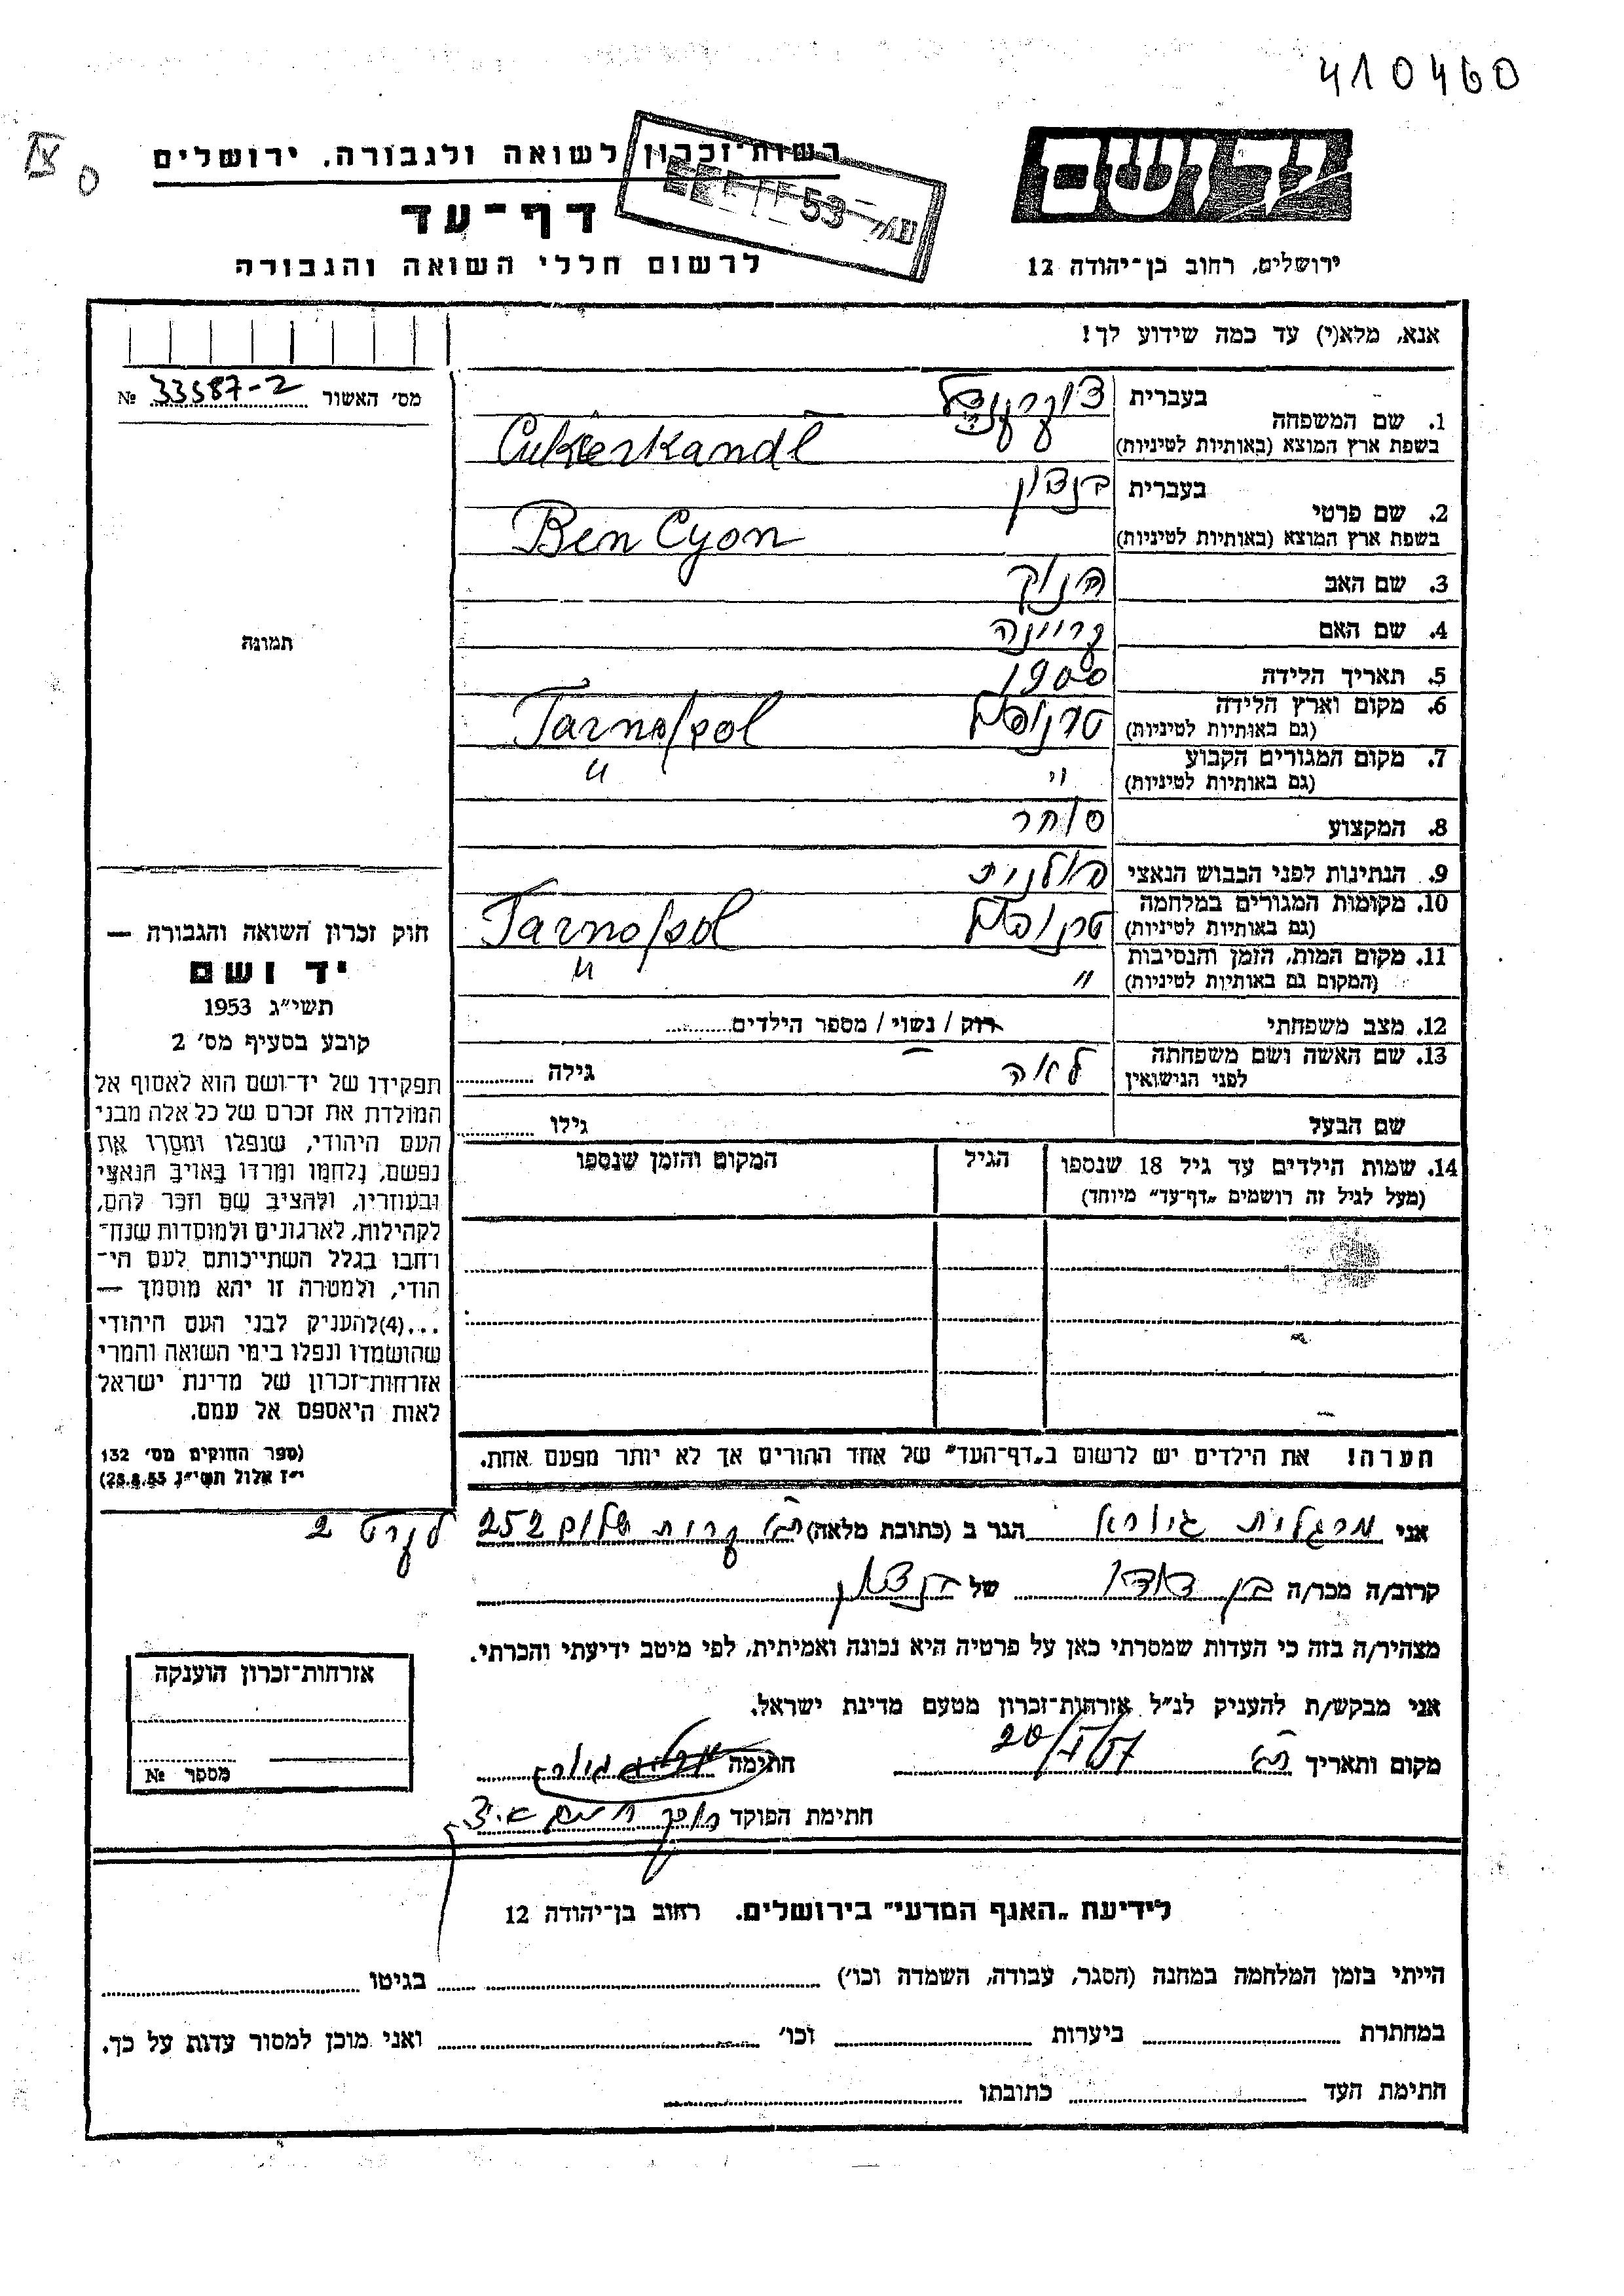 410460
רשות־זכרון לשואה ולגבורה, ירושלים
דף־עד
לרשום חללי השואה והגבורה
יד ושם
ירושלים, רחוב בן־יהודה 12
אנא, מלא(י) עד כמה שידוע לך!
מס׳ האשור № 33587-2
תמונה
1. שם המשפחה
בעברית
בשפת ארץ המוצא (באותיות לטיניות) Cukierkandl
2. שם פרטי
בעברית בן ציון
בשפת ארץ המוצא (באותיות לטיניות) Ben Cyon
3. שם האב חנוך
4. שם האם
5. תאריך הלידה 1900
6. מקום וארץ הלידה
(גם באותיות לטיניות) טרנופול Tarnopol
7. מקום המגורים הקבוע
(גם באותיות לטיניות) " "
8. המקצוע סוחר
9. הנתינות לפני הכבוש הנאצי פולנית
10. מקומות המגורים במלחמה
(גם באותיות לטיניות) טרנופול Tarnopol
11. מקום המות, הזמן והנסיבות
(המקום גם באותיות לטיניות) " "
12. מצב משפחתי רוק / נשוי / מספר הילדים
13. שם האשה ושם משפחתה
לפני הנישואין לאה גילה
שם הבעל גילו
14. שמות הילדים עד גיל 18 שנספו הגיל המקום והזמן שנספו
(מעל לגיל זה רושמים „דף־עד״ מיוחד)
הערה! את הילדים יש לרשום ב„דף־העד״ של אחד ההורים אך לא יותר מפעם אחת.
חוק זכרון השואה והגבורה —
יד ושם
תשי״ג 1953
קובע בסעיף מס׳ 2
תפקידו של יד־ושם הוא לאסוף אל
המולדת את זכרם של כל אלה מבני
העם היהודי, שנפלו ומסרו את
נפשם, נלחמו ומרדו באויב הנאצי
ובעוזריו, ולהציב שם וזכר להם,
לקהילות, לארגונים ולמוסדות שנח־
רחבו בגלל השתייכותם לעם הי־
הודי, ולמטרה זו יהא מוסמך —
...(4)להעניק לבני העם היהודי
שהושמדו ונפלו בימי השואה והמרי
אזרחות־זכרון של מדינת ישראל
לאות היאספם אל עמם.
(ספר החוקים מס׳ 132
י״ז אלול תשי״ג 28.8.53)
אני מרגלית גיורא הגר ב (כתובת מלאה) קרית שלום 252
קרוב/ה מכר/ה בן דודו של בן ציון
מצהיר/ה בזה כי העדות שמסרתי כאן על פרטיה היא נכונה ואמיתית, לפי מיטב ידיעתי והכרתי.
אני מבקש/ת להעניק לנ״ל אזרחות־זכרון מטעם מדינת ישראל.
מקום ותאריך חתימה
חתימת הפוקד
אזרחות־זכרון הוענקה
מספר №
לידיעת „האגף המדעי״ בירושלים. רחוב בן־יהודה 12
הייתי בזמן המלחמה במחנה (הסגר, עבודה, השמדה וכו׳) בגיטו
במחתרת ביערות וכו׳ ואני מוכן למסור עדות על כך.
חתימת העד כתובתו